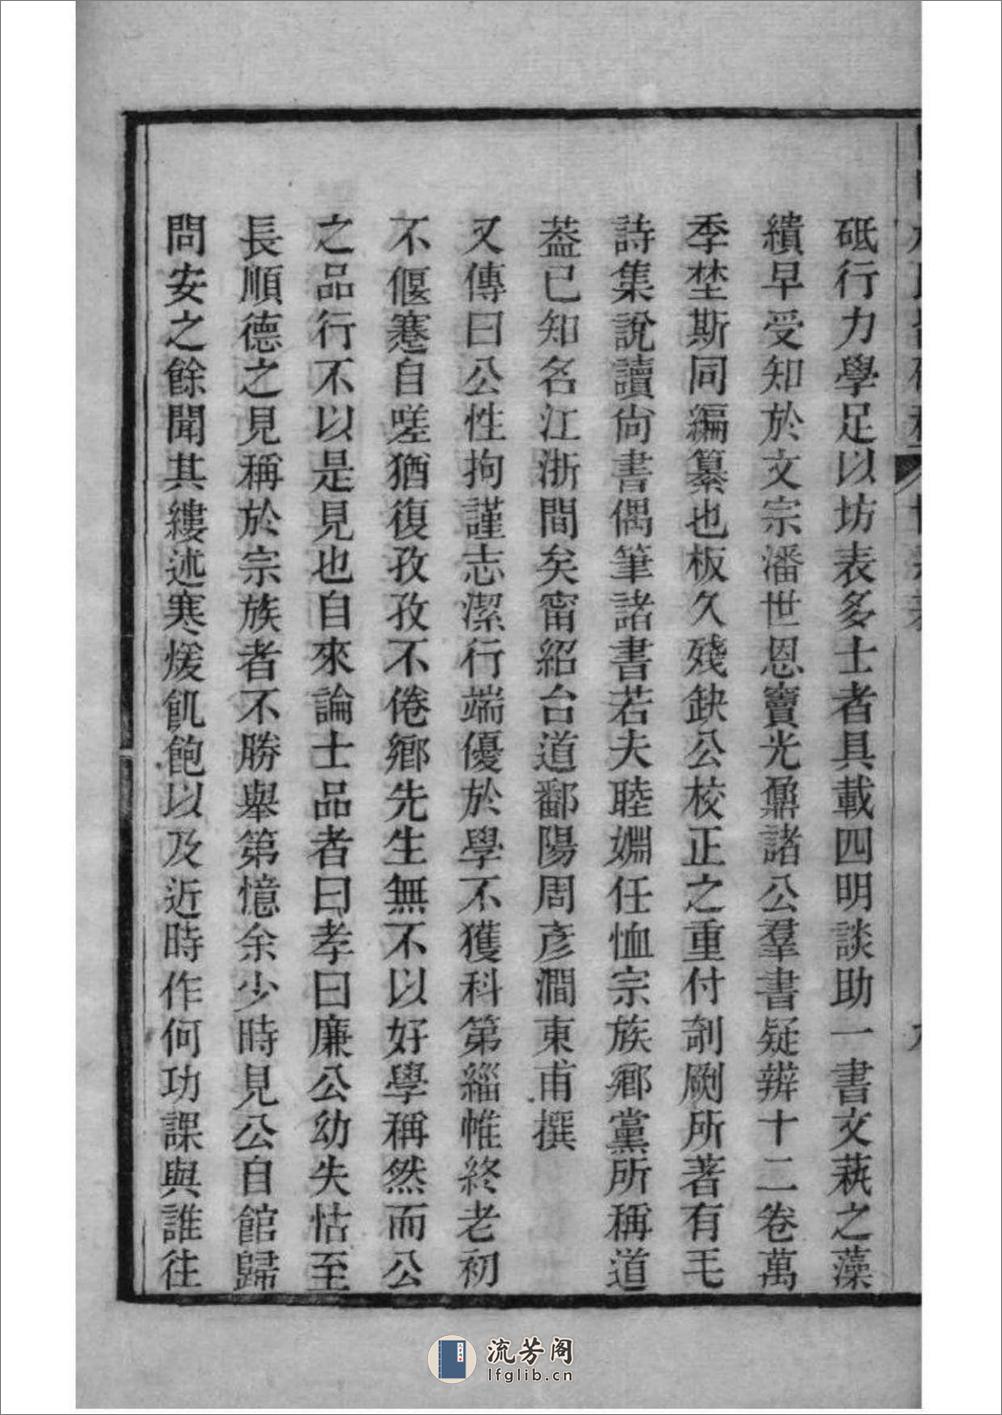 砥行力學足以坊表多士者具載四明談助一書文蓺之藻
繢早受知於文宗潘世恩竇光鼐諸公羣書疑辨十二卷萬
季埜斯同編纂也板久殘缺公校正之重付剞劂所著有毛
詩集說讀尙書偶筆諸書若夫睦婣任恤宗族鄉黨所稱道
葢已知名江浙間矣甯紹台道鄱陽周彥澗東甫撰
又傳曰公性拘謹志潔行端優於學不獲科第緇帷終老初
不偃蹇自嗟猶復孜孜不倦鄉先生無不以好學稱然而公
之品行不以是見也自來論士品者曰孝曰廉公幼失怙至
長順德之見稱於宗族者不勝舉第憶余少時見公自館歸
問安之餘聞其縷述寒煖飢飽以及近時作何功課與誰往
流芳阁
lfglib.cn